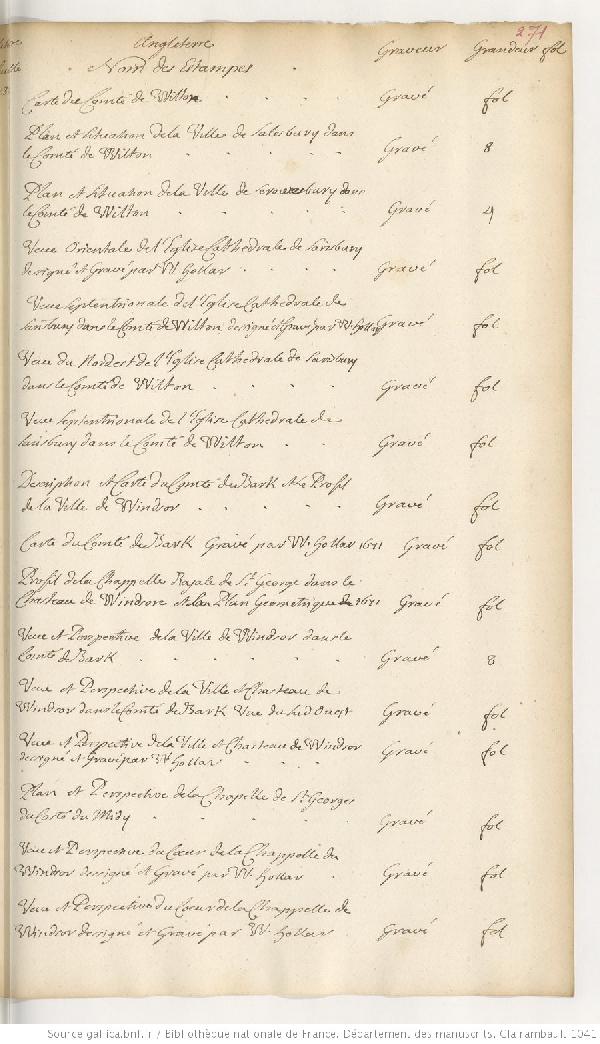 271
Angleterre
Nom des Estampes . . Graveur Grandeur fol
Carte du Comté de Wilton . . . Gravé fol
Plan et situation de la Ville de Salesbury dans
le Comté de Wilton . . . . . Gravé 8
Plan et situation de la Ville de
le Comté de Wilton . . . . . Gravé 4
Veue Orientale de l'Eglise Cathedrale de Sarisbury
designé et Gravé par W. Hollar . . . . Gravé fol
Veue septentrionale de l'Eglise Cathedrale de
dans le Comté de Wilton designé et Gravé par W. Hollar Gravé fol
Veue du Nordest de l'Eglise Cathedrale de Sarisbury
dans le Comté de Wilton . . . . Gravé fol
Veue septentrionale de l'Eglise Cathedrale de
Sarisbury dans le Comté de Wilton . . Gravé fol
Description et Carte du Comté de Bark et le Profil
de la Ville de Windsor . . . . . Gravé fol
Carte du Comté de Bark Gravé par W. Hollar 1671 Gravé fol
Profil de la Chappelle Royale de St George dans le
Chasteau de Windsore et la Plan Geometrique de 1671 Gravé fol
Veue et Perspective de la Ville de Windsor dans le
Comté de Bark . . . . . Gravé 8
Veue et Perspective de la Ville et Chasteau de
Windsor dans le Comté de Bark Veue du Sud Ouest Gravé fol
Veue et Perspective de la Ville et Chasteau de Windsor Gravé fol
designé et Gravé par W Hollar . . .
Plan et Perspective de la Chapelle de St Georges
du Costé du Midy . . . . Gravé fol
Veue et Perspective du Cœur de la Chappelle de
Windsor designé et Gravé par W. Hollar . Gravé fol
Veue et Perspective du Cœur de la Chappelle de
Windsor designé et Gravé par W. Hollar . Gravé fol
Source gallica.bnf.fr / Bibliothèque nationale de France. Département des manuscrits. Clairambault 1041